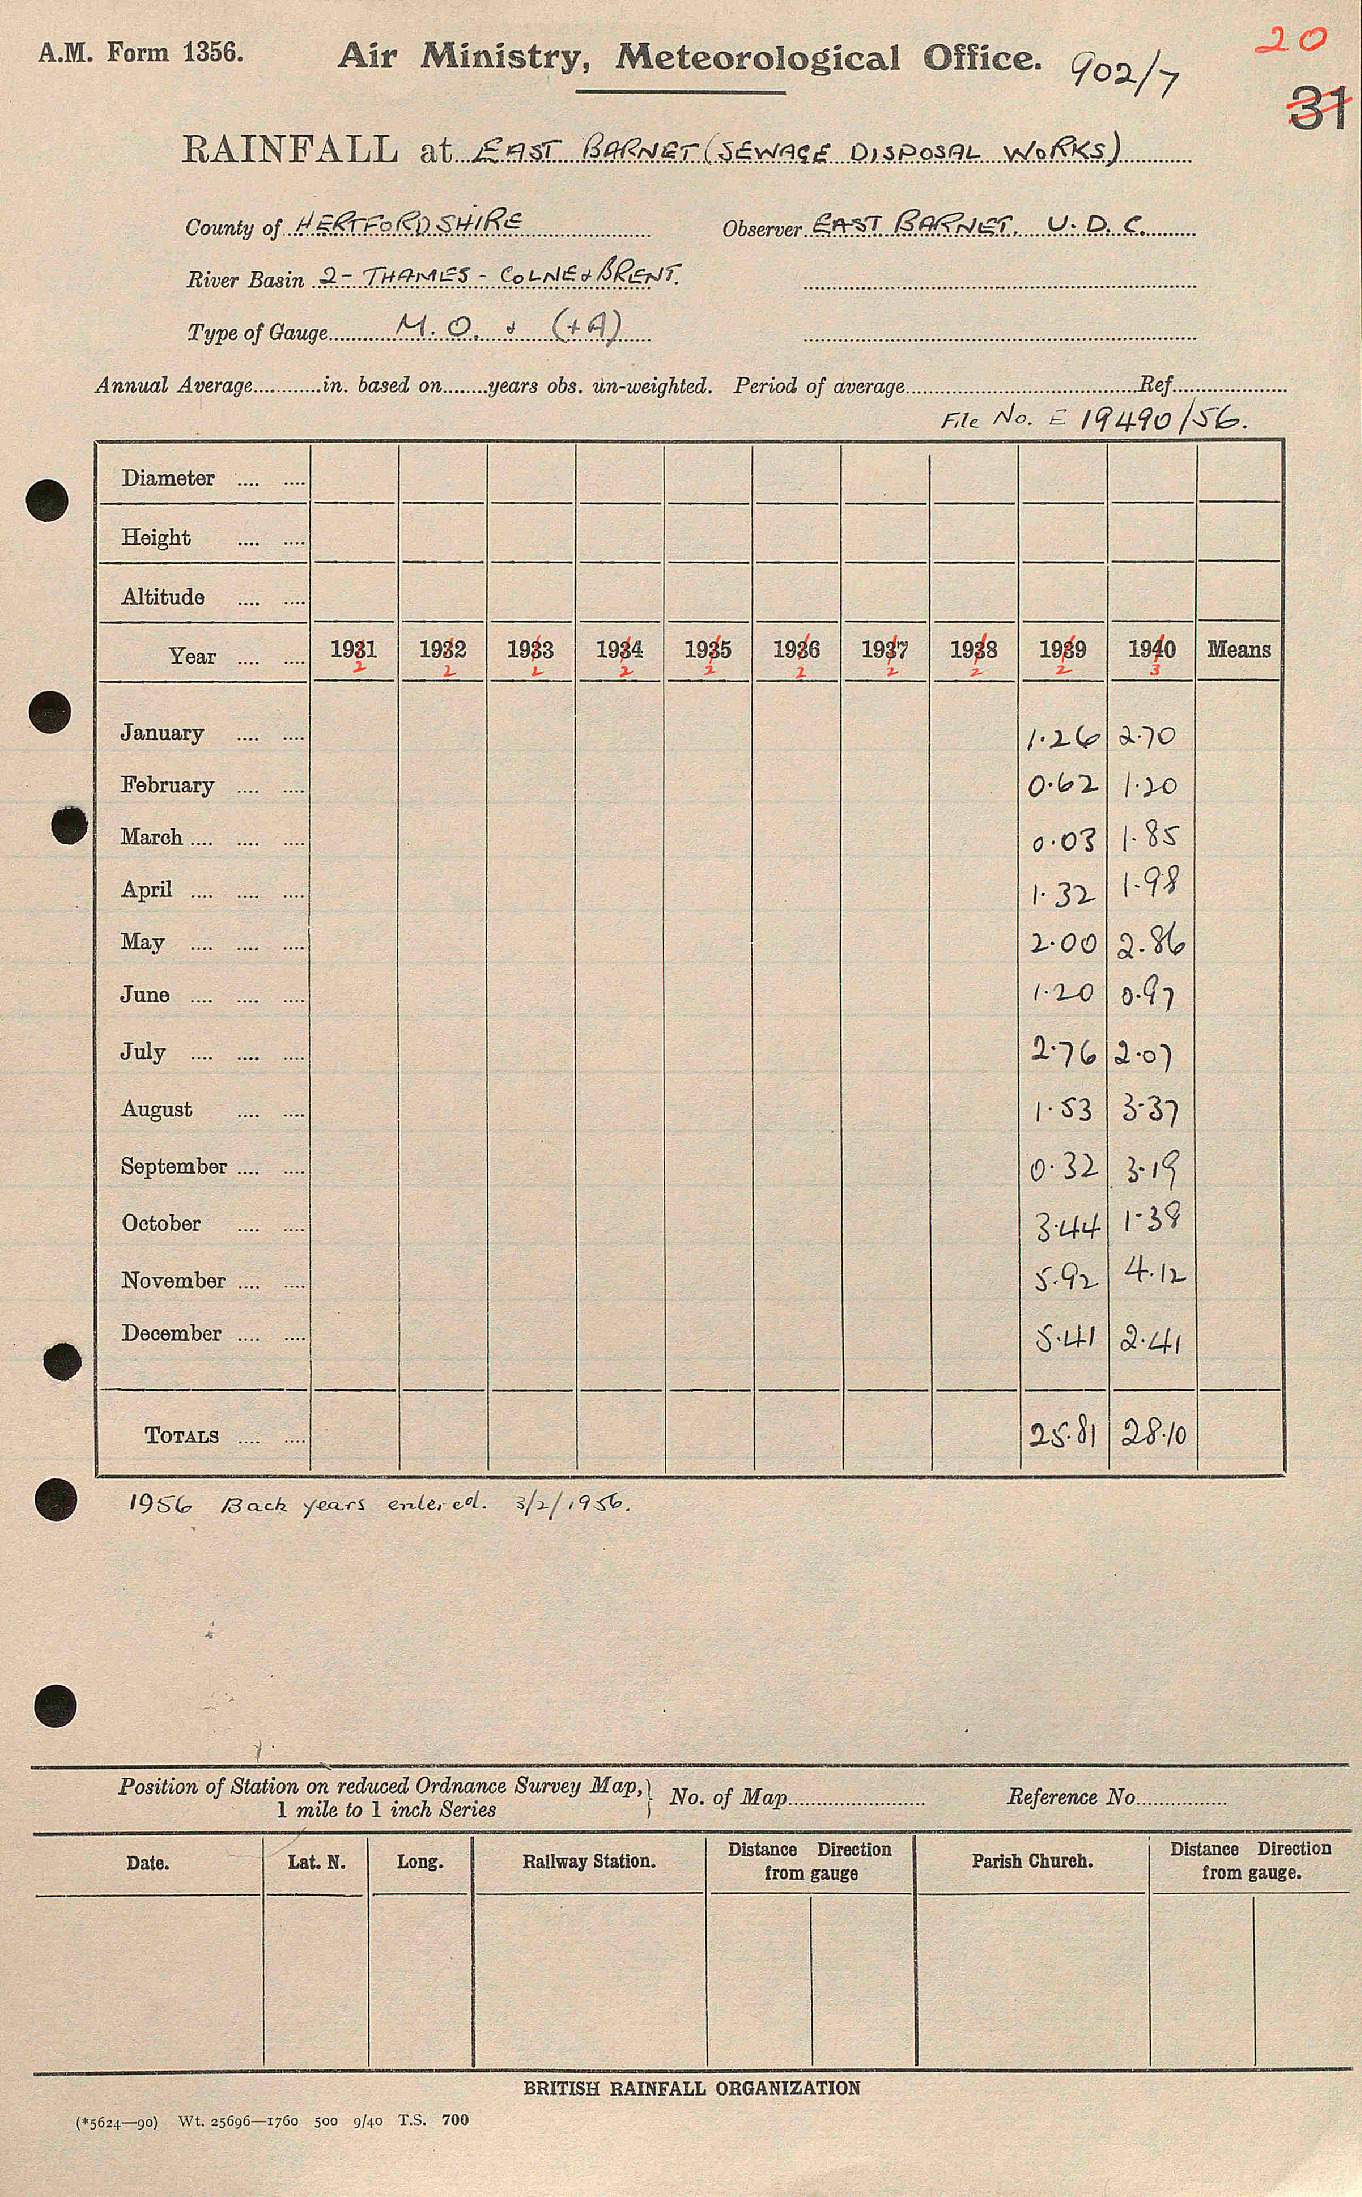 20
A.M. Form 1356. Air Ministry, Meteorological Office. 902/7
31
RAINFALL at EAST BARNET (SEWAGE DISPOSAL WORKS)
County of HERTFORDSHIRE Observer EAST BARNET. U.D.C.
River Basin 2 - THAMES - COLNE & BRENT.
Type of Gauge M.O. & (+A)
Annual Average............in. based on........years obs. un-weighted. Period of average..........Ref..........
File No. E 19490/56.
Diameter .... ....
Height .... ....
Altitude .... ....
Year .... .... 1931 1932 1933 1934 1935 1936 1937 1938 1939 1940 Means
2 2 2 2 2 2 2 2 2 3
January .... .... 1.26 2.70
February .... .... 0.62 1.20
March .... .... .... 0.03 1.85
April .... .... .... 1.32 1.98
May .... .... .... 2.00 2.86
June .... .... .... 1.20 0.97
July .... .... .... 2.76 2.07
August .... .... 1.53 3.37
September .... .... 0.32 3.19
October .... .... 3.44 1.38
November .... .... 5.92 4.12
December .... .... 5.41 2.41
TOTALS .... .... 25.81 28.10
1956 Back years entered. 3/2/1956.
Position of Station on reduced Ordnance Survey Map, } No. of Map.......... Reference No..........
1 mile to 1 inch Series
Date. Lat. N. Long. Railway Station. Distance Direction from gauge Parish Church. Distance Direction from gauge.
BRITISH RAINFALL ORGANIZATION
(*5624—90) Wt. 25696—1760 500 9/40 T.S. 700